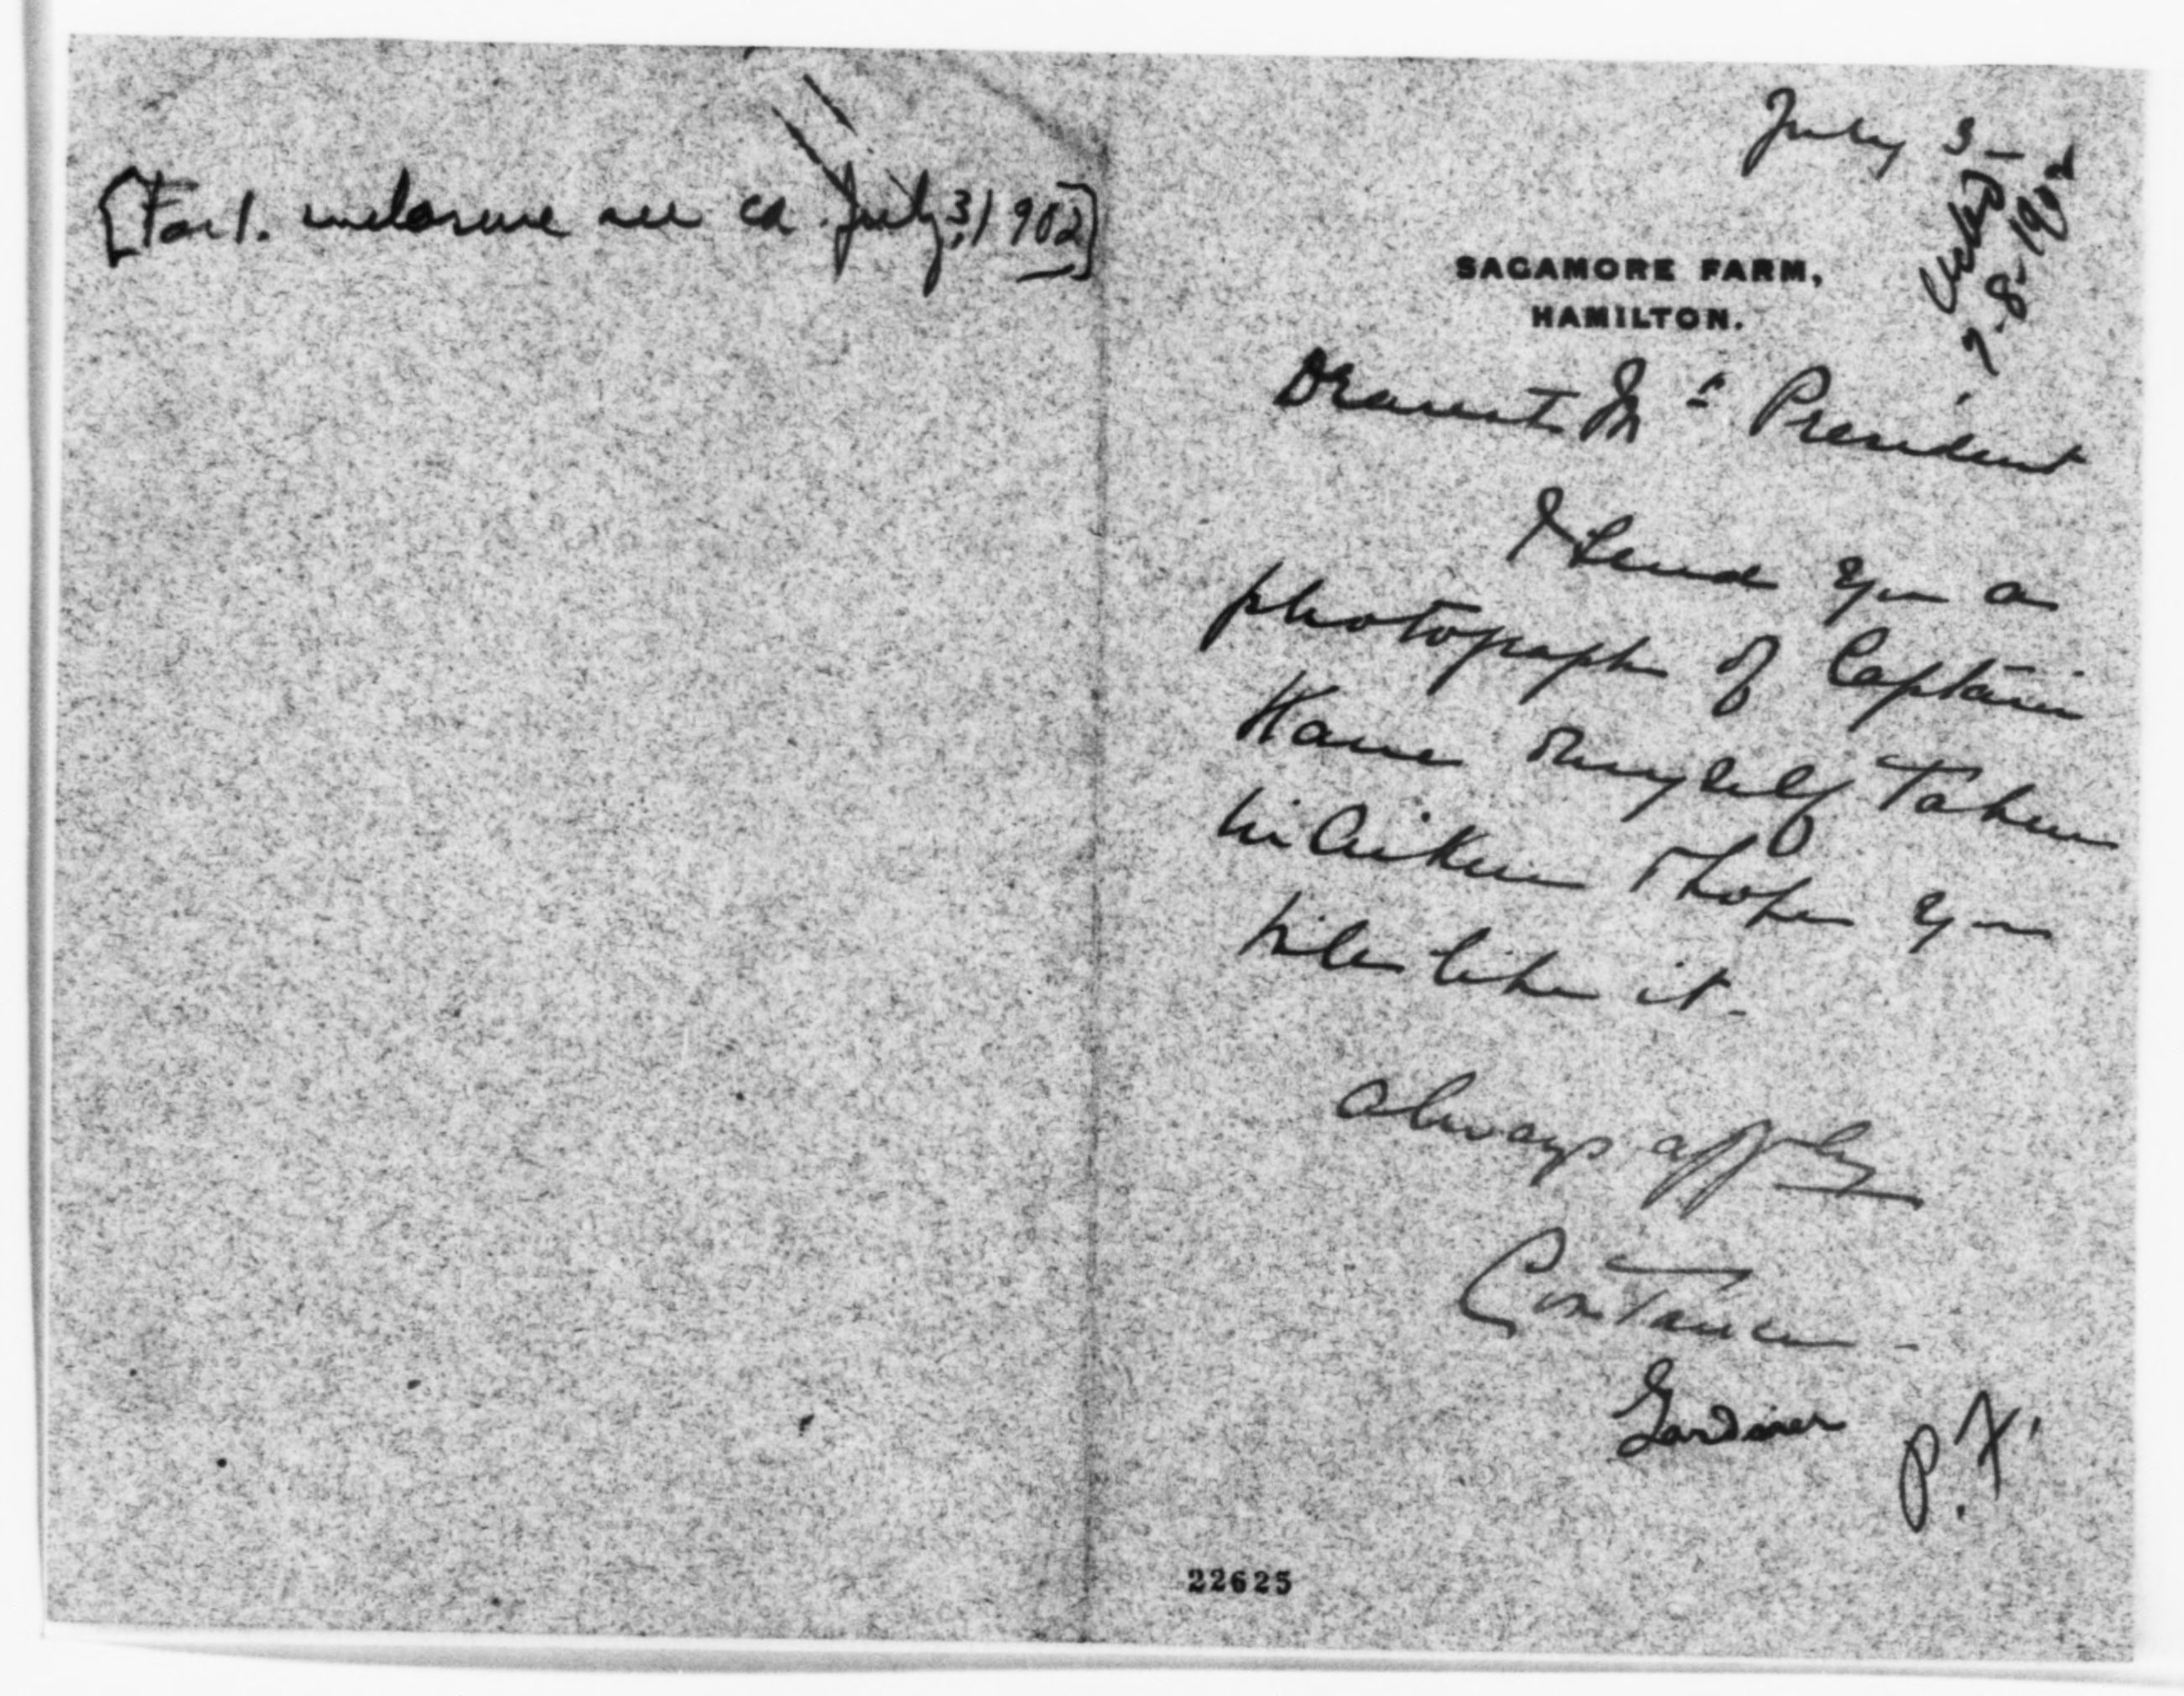 [For 1. enclosure see ca. July 3, 1902]
July 3-
Ackd
7-8-1902
SAGAMORE FARM,
HAMILTON.
Dearest Mr President
I send you a
photograph of Captain
Hame & myself taken
in Aiken & hope you
will like it-
always affly
Constance-
Gardiner
P.F.
22625